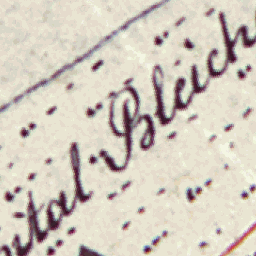 ital Bleich